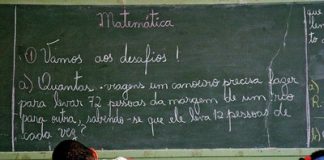 Matemática
① Vamos aos desafios!
a) Quantas viagens um canoeiro precisa fazer
para levar 72 pessoas da margem de um rio
para outra, sabendo-se que ele leva 12 pessoas de
cada vez?
que
len
to
a)
R.